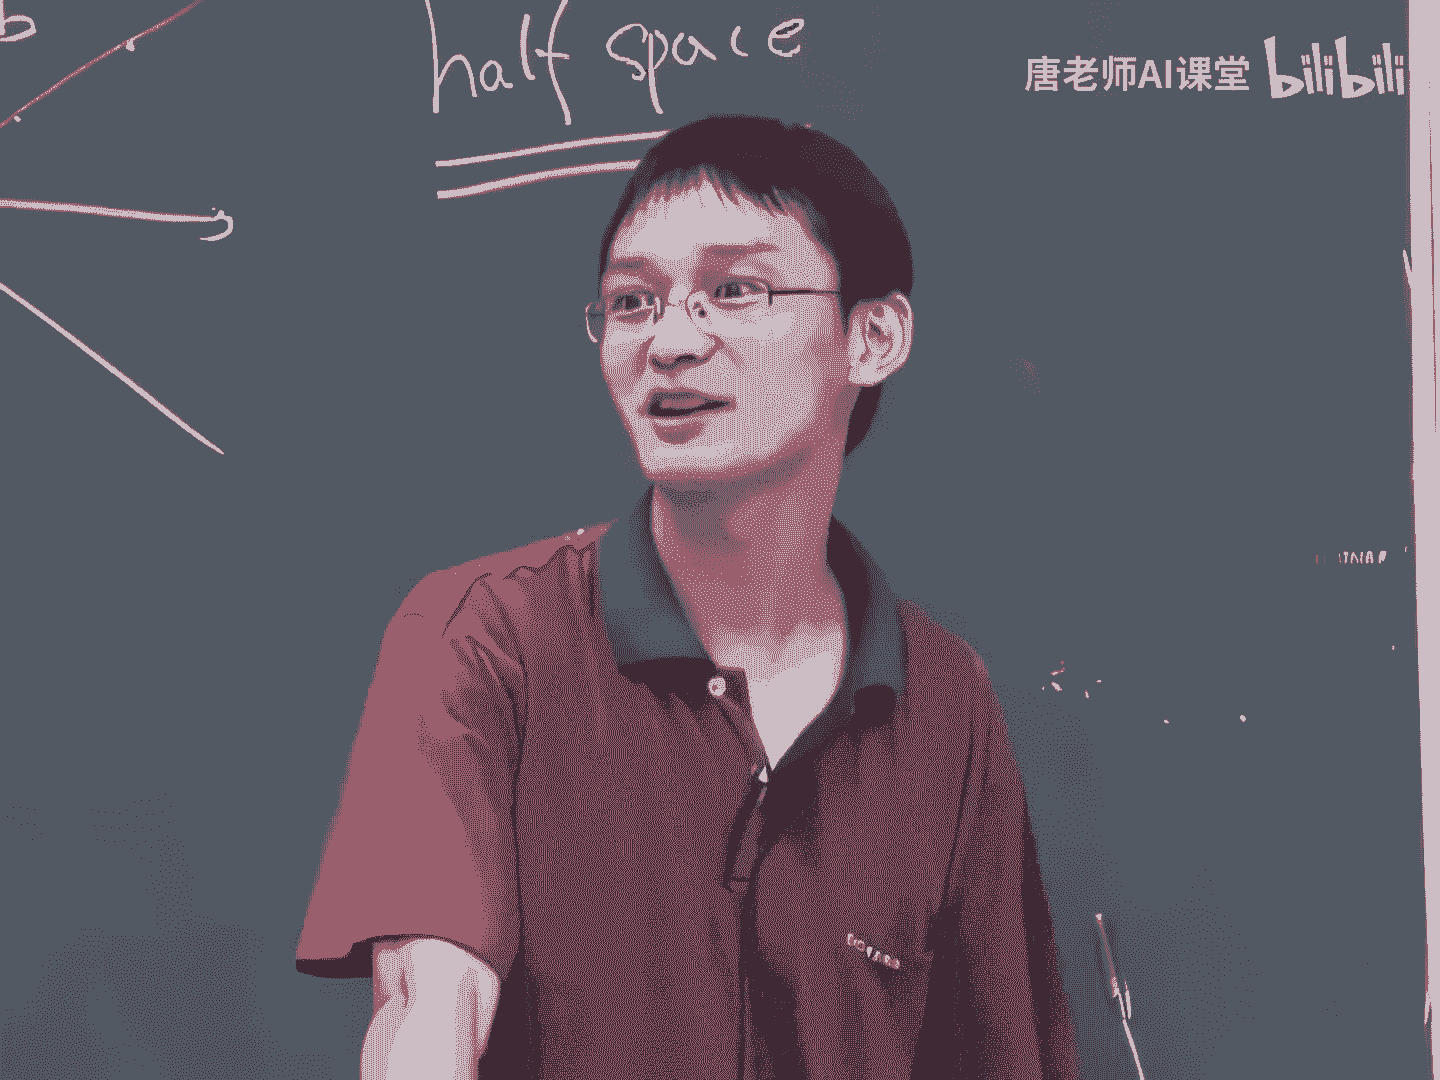 b
half space
唐老师AI课堂 bilibili